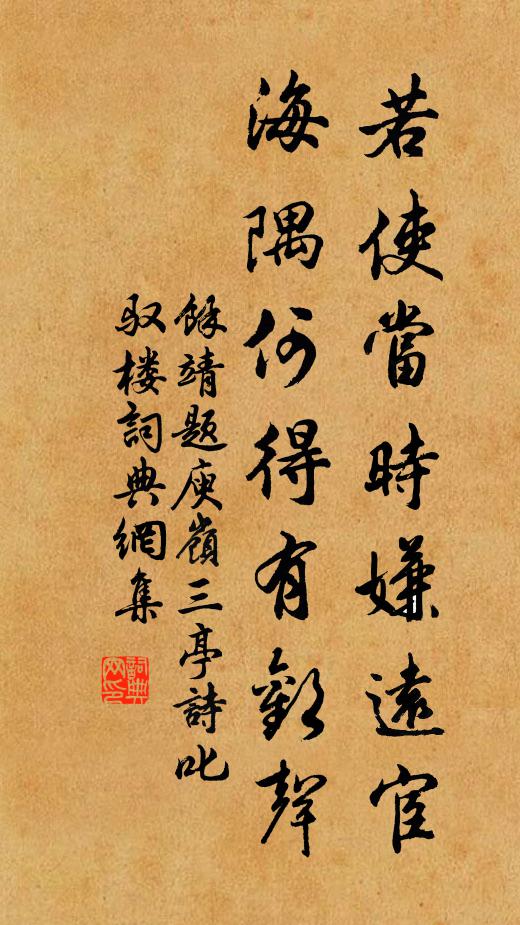 若使當時嫌遠宦
海隅何得有歡聲
餘靖題庾嶺三亭詩叱
馭樓詞典網集
詞典
网印